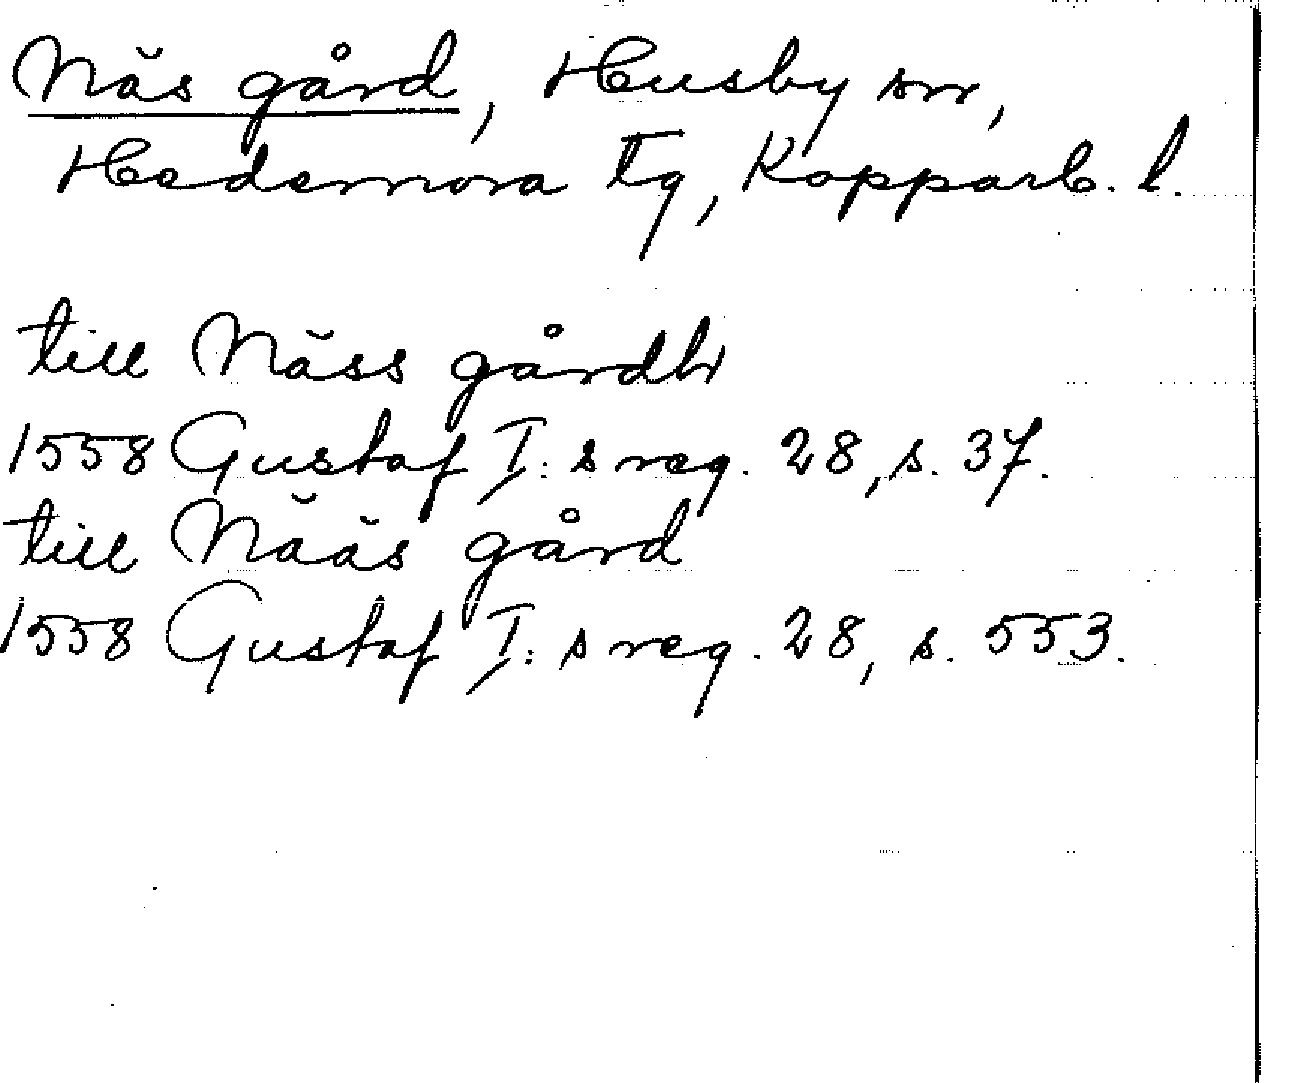 Näs gård, Husby sn,
Hedemora tg, Kopparb. l.
till Näss gårdh
1558 Gustaf I:s reg. 28, s. 37.
till Nääs gård
1558 Gustaf I:s reg. 28, s. 553.